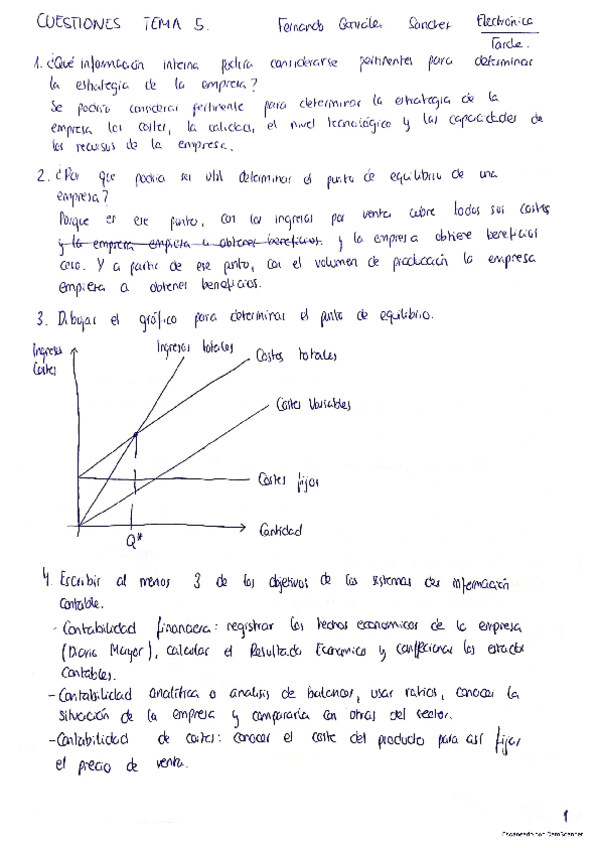 CUESTIONES TEMA 5. Fernando González Sánchez Electrónica
Tarde.
1. ¿Qué información interna podría considerarse pertinentes para determinar
la estrategia de la empresa?
Se podría considerar pertinente para determinar la estrategia de la
empresa los costes, la calidad, el nivel tecnológico y las capacidades de
los recursos de la empresa.
2. ¿Por que podria ser util determinar el punto de equilibrio de una
empresa?
Porque en ese punto, con los ingresos por venta cubre todos sus costes
y la empresa empieza a obtener beneficios. y la empresa obtiene beneficios
cero. Y a partir de ese punto, con el volumen de producción la empresa
empieza a obtener beneficios.
3. Dibujar el gráfico para determinar el punto de equilibrio.
Ingresos
Costes
Ingresos totales
Costes totales
Costes Variables
Costes fijos
Cantidad
Q*
4. Escribir al menos 3 de los objetivos de los sistemas de información
contable.
- Contabilidad financiera: registrar los hechos economicos de la empresa
(Diario Mayor), calcular el Resultado Economico y confeccionar los estados
contables.
- Contabilidad analítica o analisis de balances, usar ratios, conocer la
situación de la empresa y compararla con otras del sector.
- Contabilidad de costes: conocer el coste del producto para así fijar
el precio de venta.
1
Escaneado con CamScanner